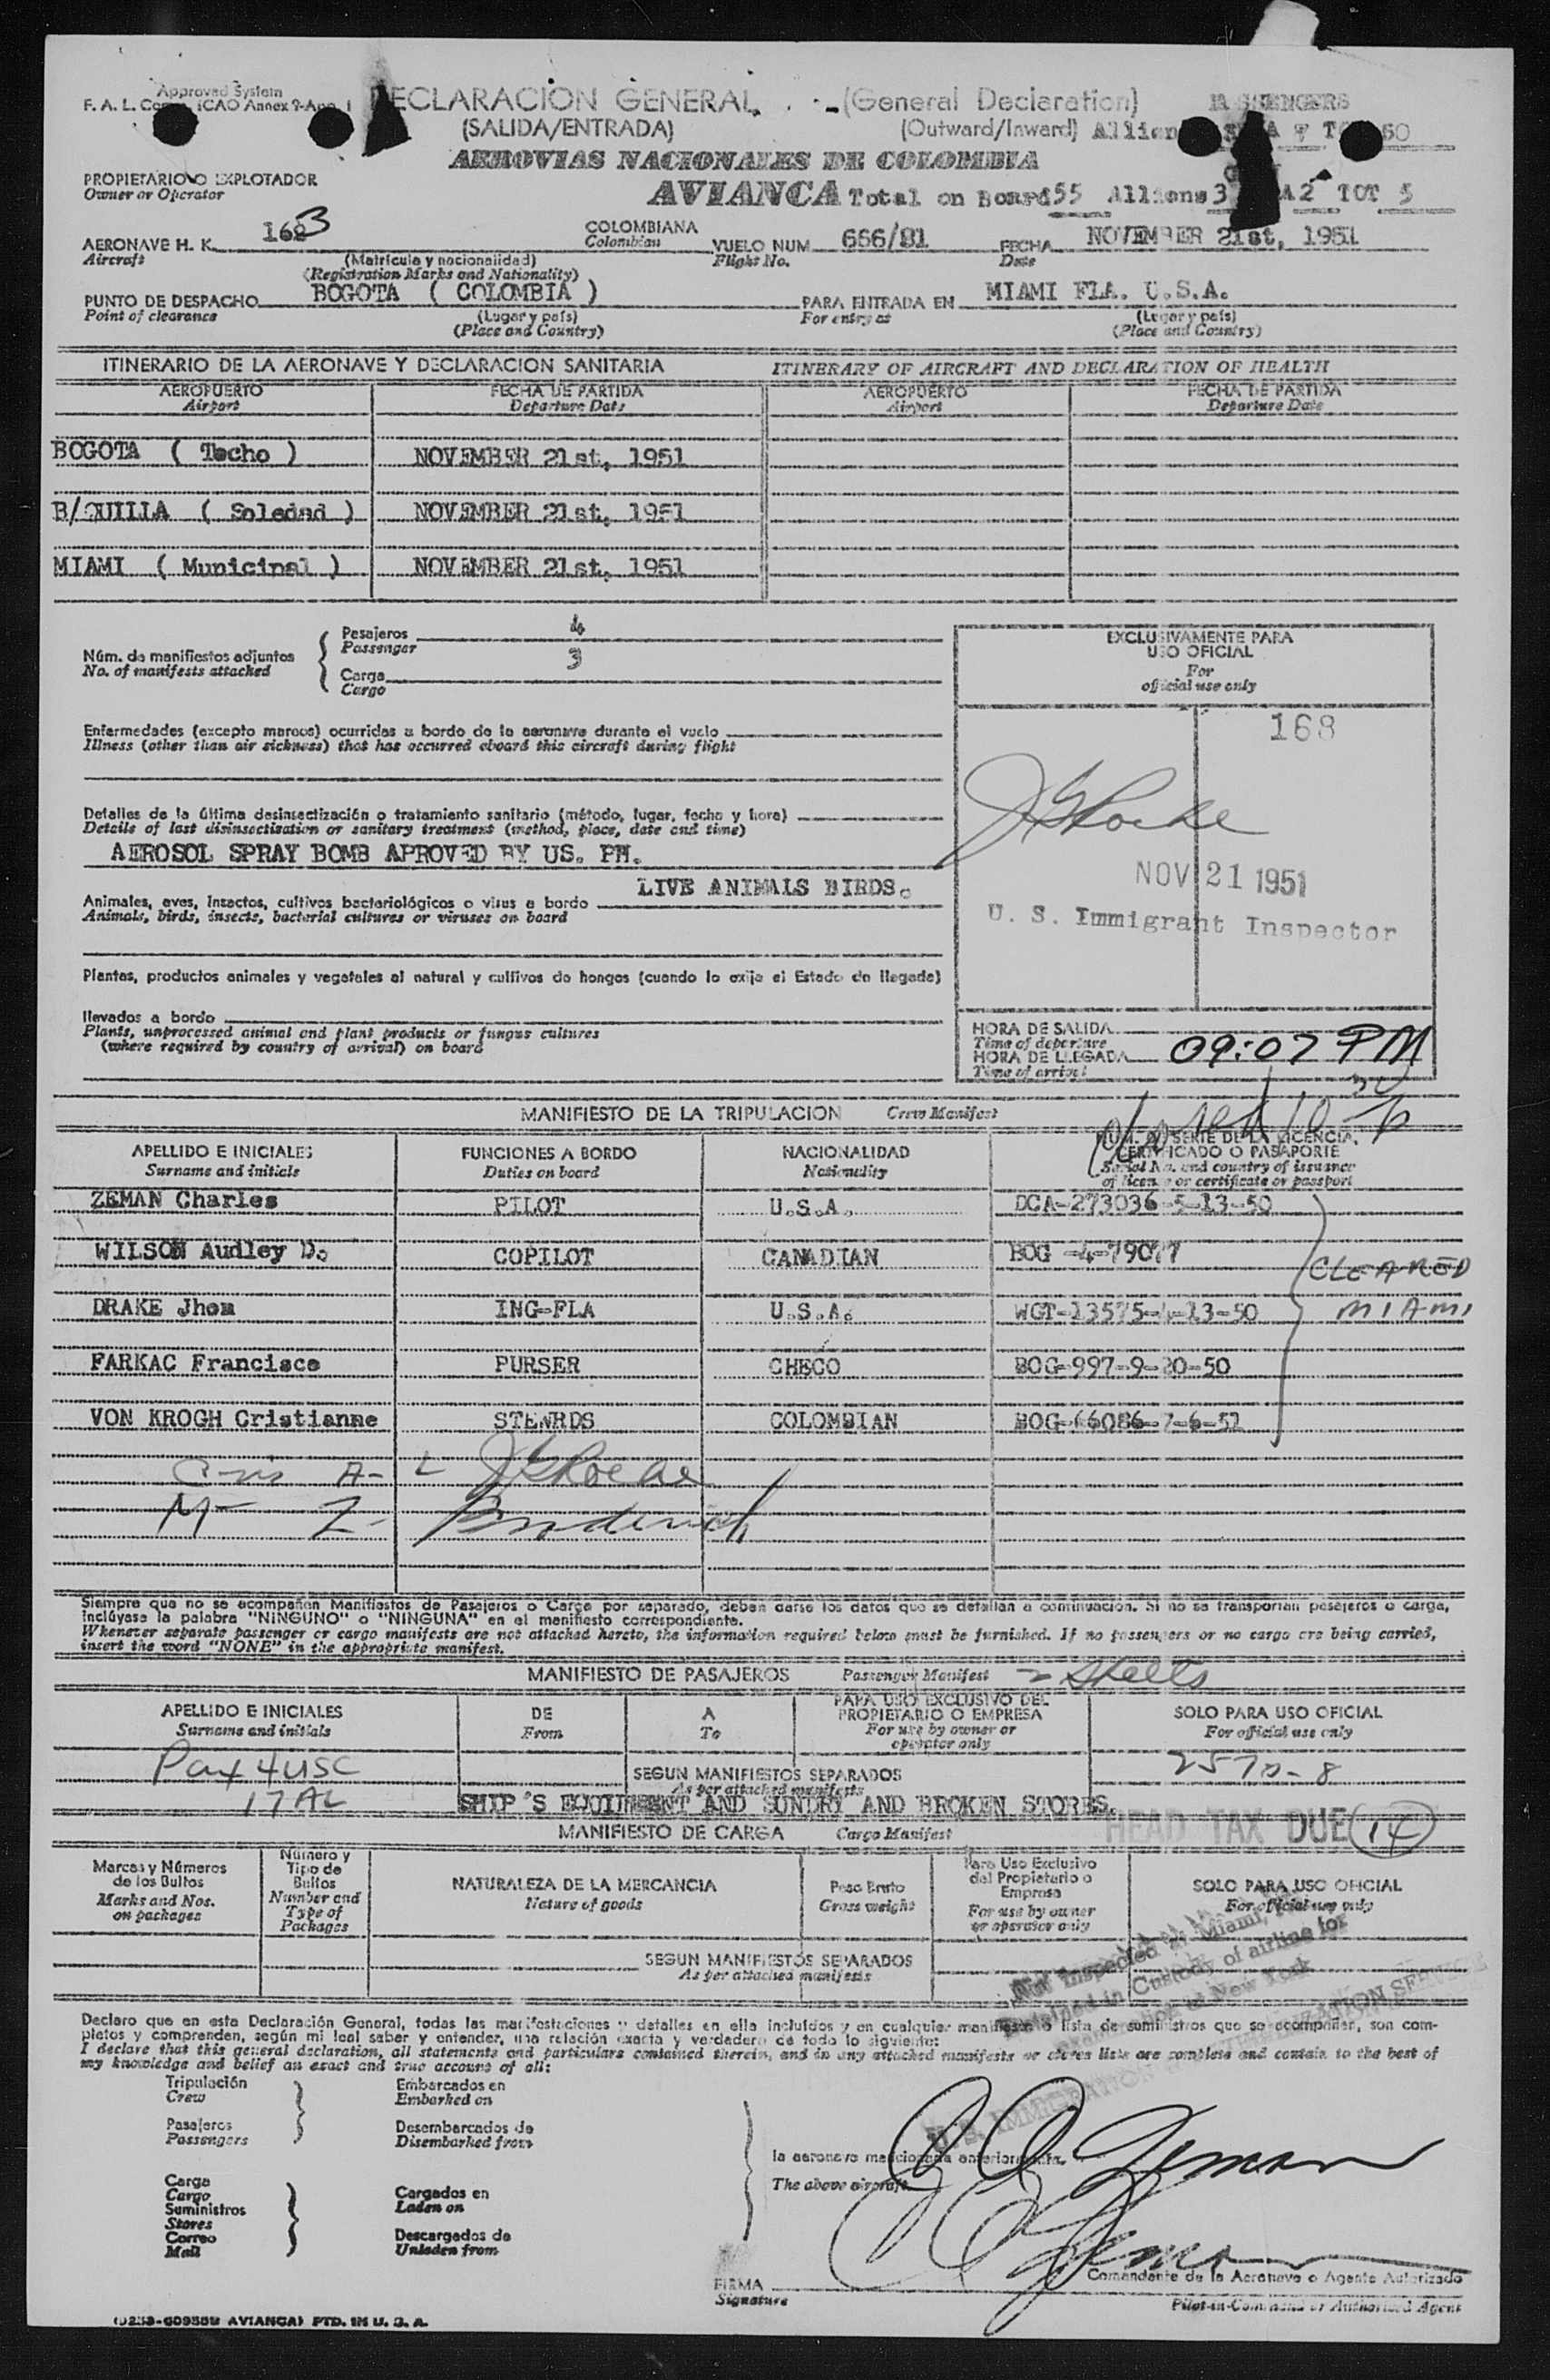 Approved System
F. A. L. ICAO Annex 9-App. 1
DECLARACION GENERAL (General Declaration)
PASSENGERS
(SALIDA/ENTRADA) (Outward/Inward)
AEROVIAS NACIONALES DE COLOMBIA
PROPIETARIO O EXPLOTADOR
Owner or Operator
AVIANCA Total on Board 55 Alliens 3 A2 TOT 5
AERONAVE H. K. 163 COLOMBIANA VUELO NUM 666/81 FECHA NOVEMBER 21st, 1951
Aircraft (Matricula y nacionalidad) Colombian Flight No. Date
(Registration Marks and Nationality)
PUNTO DE DESPACHO BOGOTA ( COLOMBIA ) PARA ENTRADA EN MIAMI FLA. U.S.A.
Point of clearance (Lugar y país) For entry at (Lugar y país)
(Place and Country) (Place and Country)
ITINERARIO DE LA AERONAVE Y DECLARACION SANITARIA ITINERARY OF AIRCRAFT AND DECLARATION OF HEALTH
AEROPUERTO FECHA DE PARTIDA AEROPUERTO FECHA DE PARTIDA
Airport Departure Date Airport Departure Date
BOGOTA ( Techo ) NOVEMBER 21st, 1951
B/QUILLA ( Soledad ) NOVEMBER 21st, 1951
MIAMI ( Municipal ) NOVEMBER 21st, 1951
Núm. de manifiestos adjuntos
No. of manifests attached
Pasajeros 4
Passenger
Carga 3
Cargo
EXCLUSIVAMENTE PARA
USO OFICIAL
For
official use only
168
Enfermedades (excepto mareos) ocurridas a bordo de la aeronave durante el vuelo
Illness (other than air sickness) that has occurred aboard this aircraft during flight
Detalles de la última desinsectización o tratamiento sanitario (método, lugar, fecha y hora)
Details of last disinsectisation or sanitary treatment (method, place, date and time)
AEROSOL SPRAY BOMB APROVED BY US. PH.
LIVE ANIMALS BIRDS.
Animales, aves, insectos, cultivos bacteriológicos o virus a bordo
Animals, birds, insects, bacterial cultures or viruses on board
NOV 21 1951
U. S. Immigrant Inspector
Plantas, productos animales y vegetales al natural y cultivos de hongos (cuando lo exija el Estado de llegada)
llevados a bordo
Plants, unprocessed animal and plant products or fungus cultures
(where required by country of arrival) on board
HORA DE SALIDA
Time of departure
HORA DE LLEGADA 09:07 PM
Time of arrival
MANIFIESTO DE LA TRIPULACION Crew Manifest
APELLIDO E INICIALES FUNCIONES A BORDO NACIONALIDAD NUM. DE SERIE DE LA LICENCIA,
CERTIFICADO O PASAPORTE
Surname and initials Duties on board Nationality Serial No. and country of issuance
of license or certificate or passport
ZEMAN Charles PILOT U.S.A. DCA-273036-5-13-50
WILSON Audley D. COPILOT CANADIAN BOG -4-79077
DRAKE Jhon ING-FLA U.S.A. WGT-13575-4-13-50
FARKAC Francisco PURSER CHECO BOG-997-9-20-50
VON KROGH Cristianne STEWRDS COLOMBIAN BOG-66086-7-6-51
CLEARED
MIAMI
Siempre que no se acompañen Manifiestos de Pasajeros o Carga por separado, deben darse los datos que se detallan a continuación. Si no se transportan pasajeros o carga,
inclúyase la palabra "NINGUNO" o "NINGUNA" en el manifiesto correspondiente.
Whenever separate passenger or cargo manifests are not attached hereto, the information required below must be furnished. If no passengers or no cargo are being carried,
insert the word "NONE" in the appropriate manifest.
MANIFIESTO DE PASAJEROS Passenger Manifest 2 Sheets
APELLIDO E INICIALES DE A PARA USO EXCLUSIVO DEL
PROPIETARIO O EMPRESA SOLO PARA USO OFICIAL
Surname and initials From To For use by owner or
operator only For official use only
Pax 4 USC
17 AL
SEGUN MANIFIESTOS SEPARADOS
As per attached manifests
SHIP'S EQUIPMENT AND SUNDRY AND BROKEN STORES.
HEAD TAX DUE 14
MANIFIESTO DE CARGA Cargo Manifest
Marcas y Números
de los Bultos
Marks and Nos.
on packages
Número y
Tipo de
Bultos
Number and
Type of
Packages
NATURALEZA DE LA MERCANCIA
Nature of goods
Peso Bruto
Gross weight
Para Uso Exclusivo
del Propietario o
Empresa
For use by owner
or operator only
SOLO PARA USO OFICIAL
For official use only
SEGUN MANIFIESTOS SEPARADOS
As per attached manifests
Not Inspected at Miami,
in Custody of airline for
to New York
U. S. IMMIGRATION NATURALIZATION SERVICE
Declaro que en esta Declaración General, todas las manifestaciones y detalles en ella incluidos y en cualquier manifiesto o lista de suministros que se acompañen, son com-
pletos y comprenden, según mi leal saber y entender, una relación exacta y verdadera de todo lo siguiente:
I declare that this general declaration, all statements and particulars contained therein, and in any attached manifests or stores lists are complete and contain to the best of
my knowledge and belief an exact and true account of all:
Tripulación Embarcados en
Crew Embarked on
Pasajeros Desembarcados de
Passengers Disembarked from
la aeronave mencionada anteriormente.
The above aircraft.
Carga
Cargo
Suministros
Stores
Correo
Mail
Cargados en
Laden on
Descargados de
Unladen from
FIRMA
Signature
Comandante de la Aeronave o Agente Autorizado
Pilot-in-Command or Authorised Agent
AVIANCA) PTD. IN U. S. A.